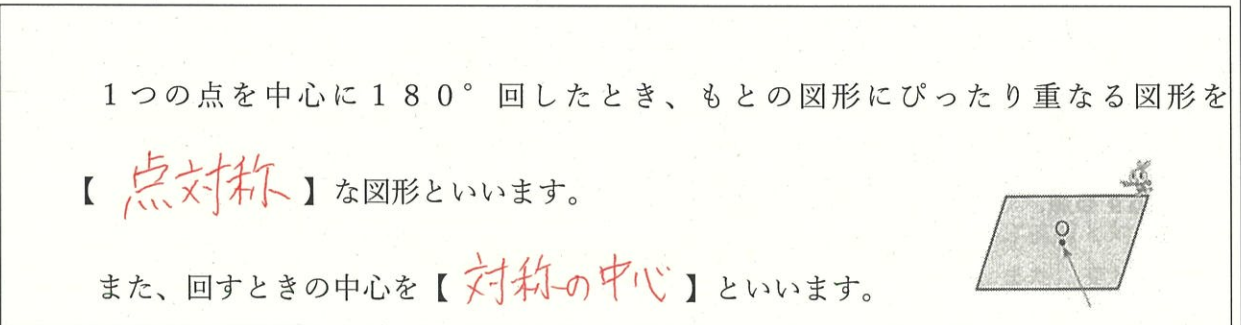 1つの点を中心に180°回したとき、もとの図形にぴったり重なる図形を
【 点対称 】な図形といいます。
また、回すときの中心を【 対称の中心 】といいます。
O